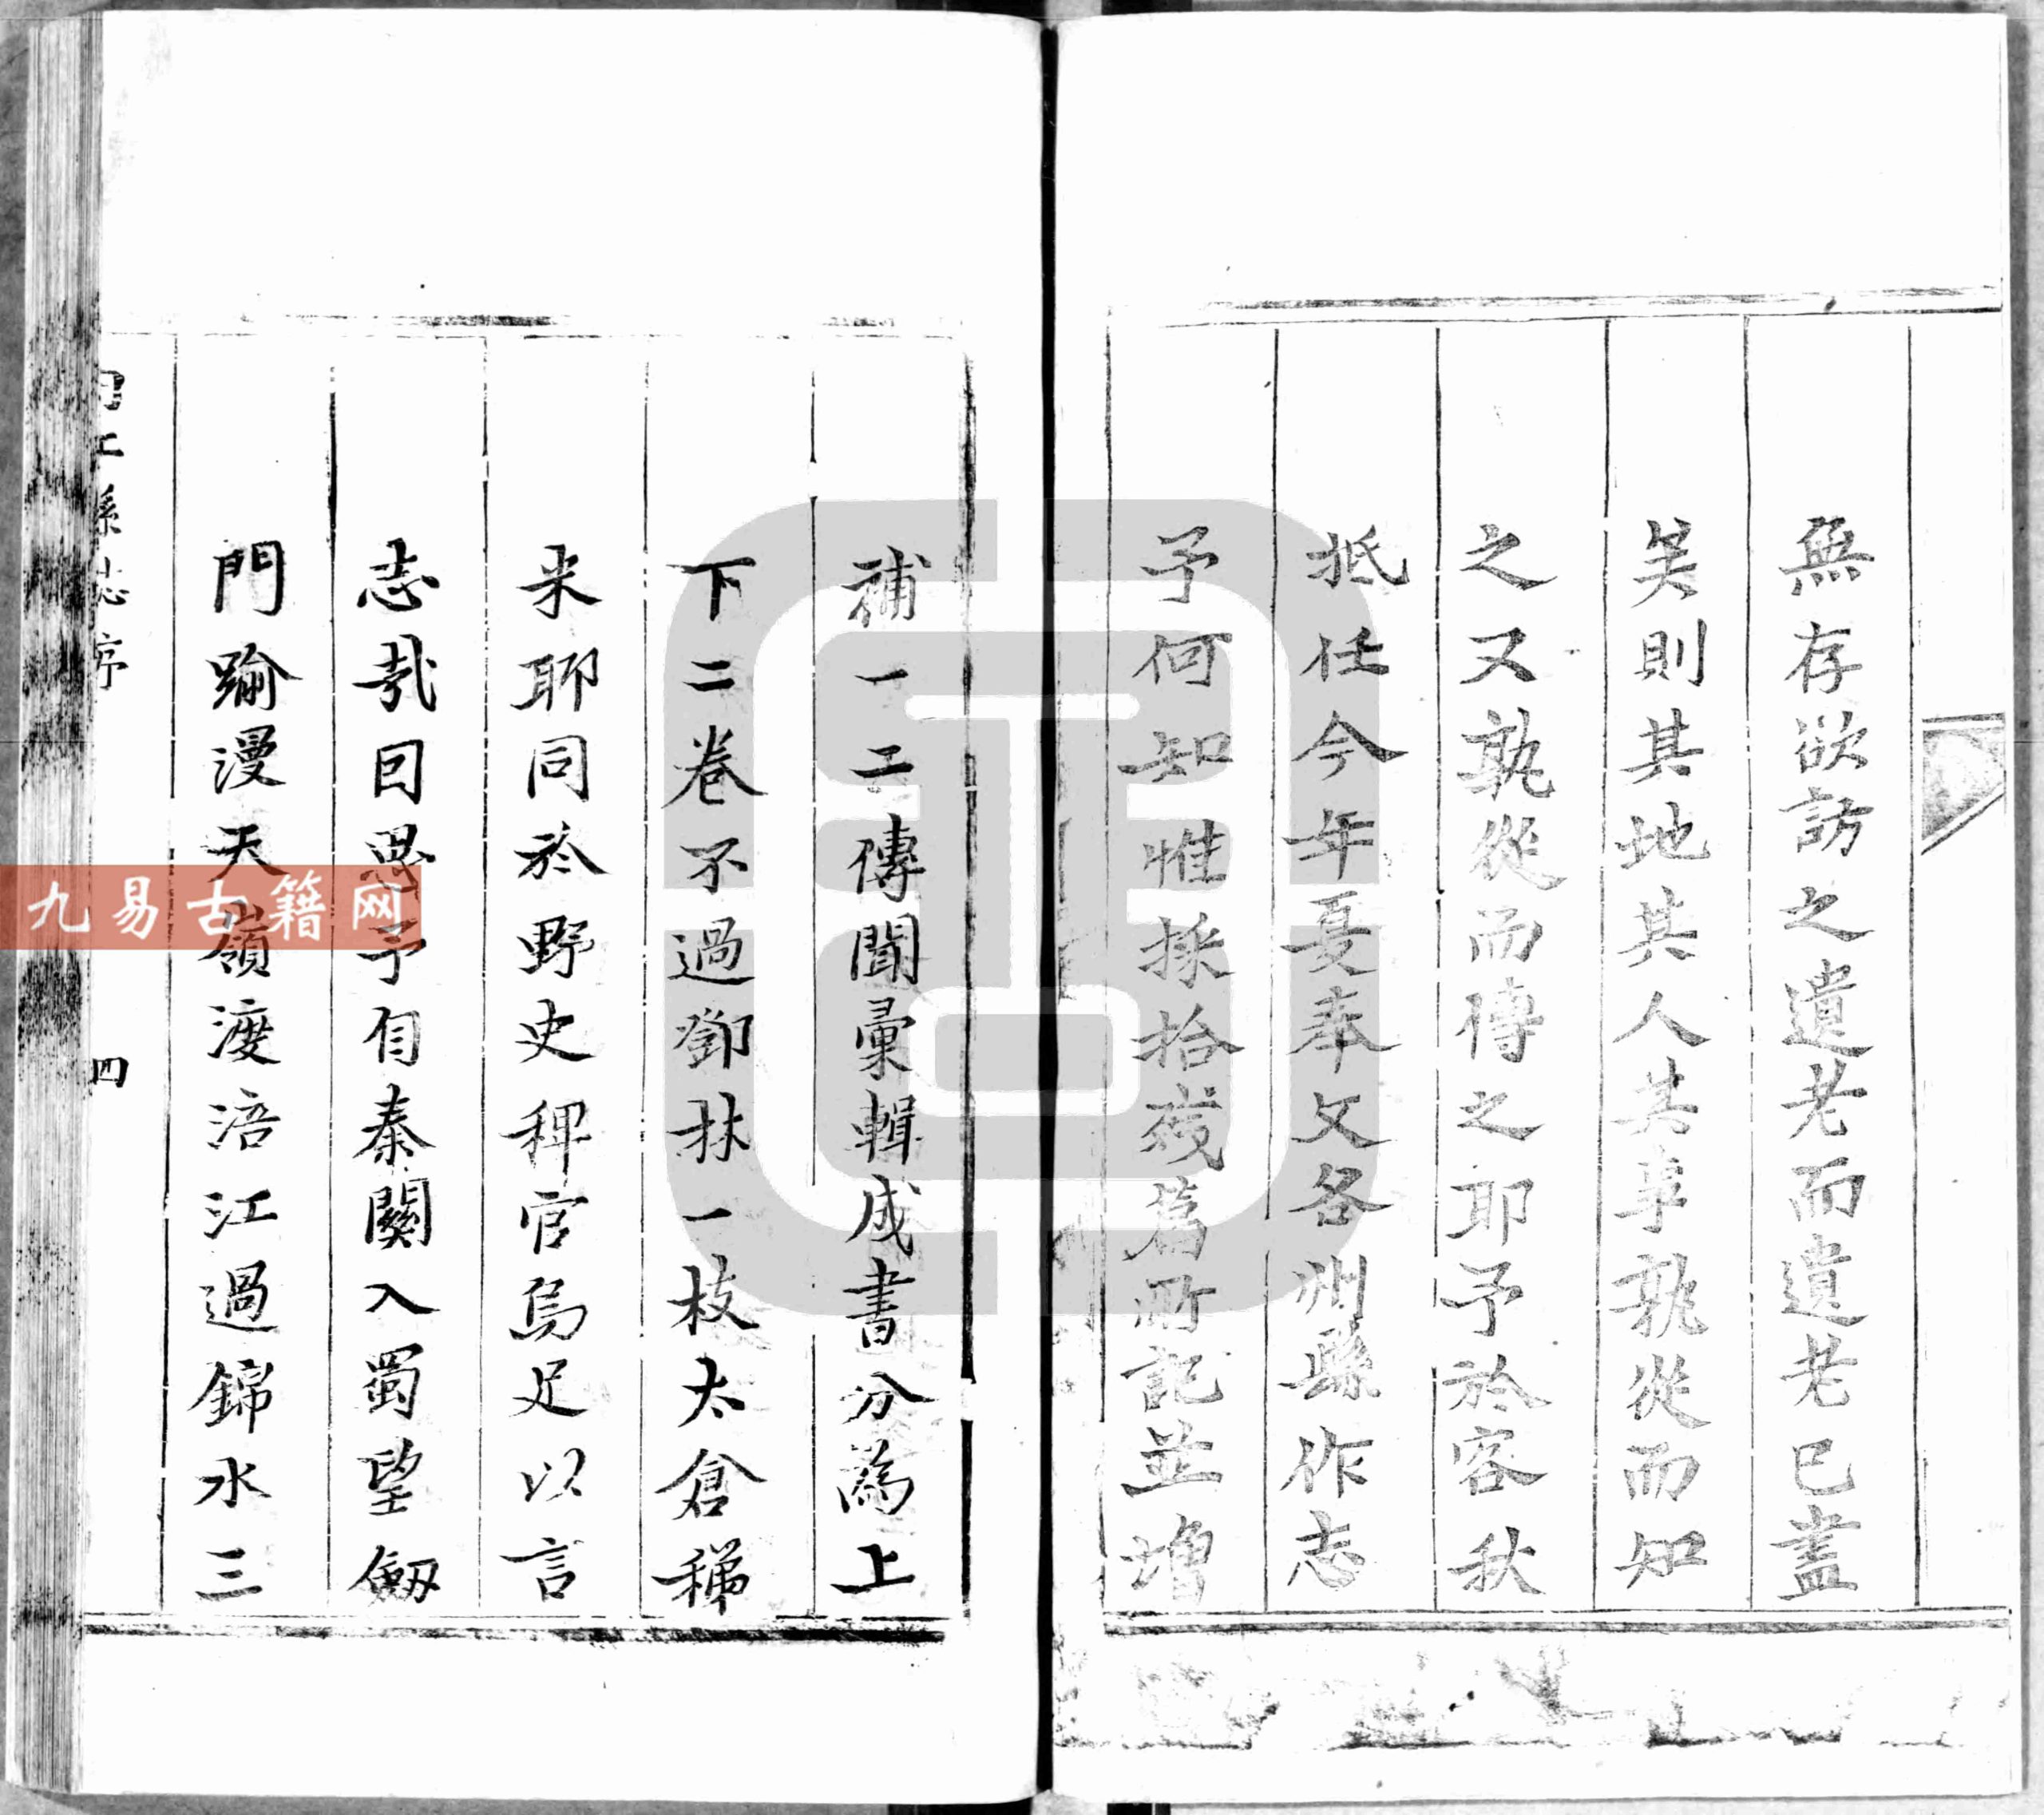 無存欲訪之遺老而遺老已盡
矣則其地其人其事孰從而知
之又孰從而傳之耶予於客秋
抵任今年夏奉文各州縣作志
予何知惟採拾殘篇所記並增
補一二傳聞彙輯成書分為上
下二卷不過鄧林一枝太倉稊
米耶同於野史稗官烏足以言
志哉因思予自秦關入蜀望劔
門踰漫天嶺渡涪江過錦水三
內江縣誌序
四
九易古籍网